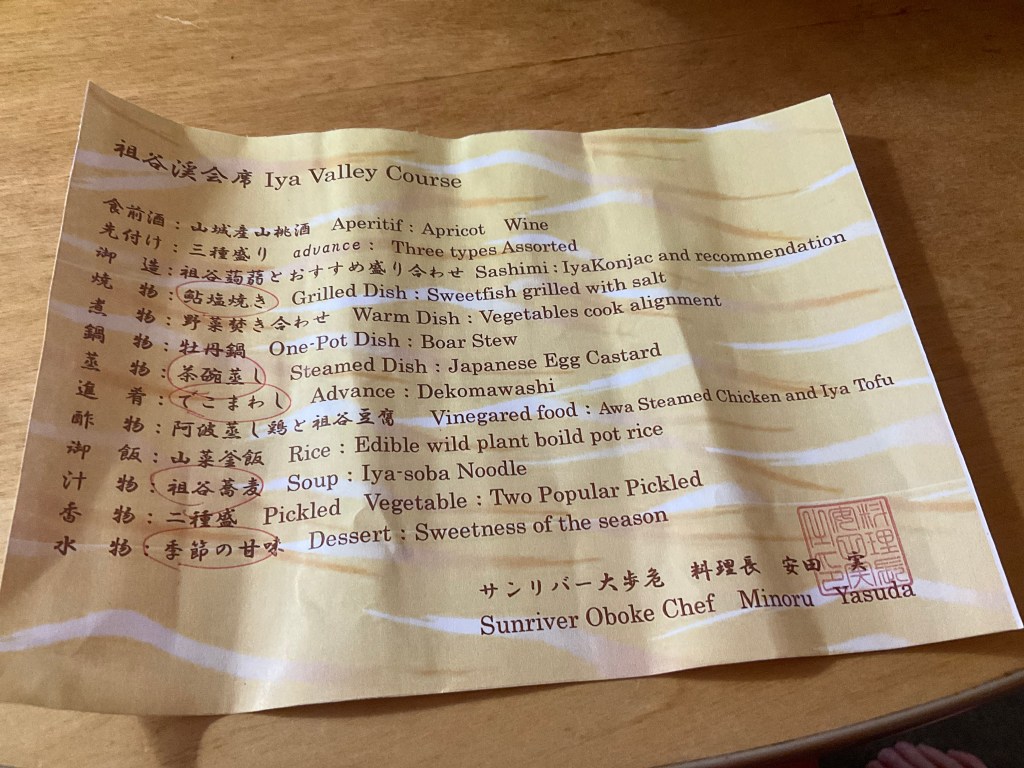 祖谷渓会席 Iya Valley Course
食前酒：山城産山桃酒 Aperitif : Apricot Wine
先付け：三種盛り advance : Three types Assorted
御造：祖谷蒟蒻とおすすめ盛り合わせ Sashimi : IyaKonjac and recommendation
焼物：鮎塩焼き Grilled Dish : Sweetfish grilled with salt
煮物：野菜焚き合わせ Warm Dish : Vegetables cook alignment
鍋物：牡丹鍋 One-Pot Dish : Boar Stew
蒸物：茶碗蒸し Steamed Dish : Japanese Egg Castard
進肴：でこまわし Advance : Dekomawashi
酢物：阿波蒸し鶏と祖谷豆腐 Vinegared food : Awa Steamed Chicken and Iya Tofu
御飯：山菜釜飯 Rice : Edible wild plant boild pot rice
汁物：祖谷蕎麦 Soup : Iya-soba Noodle
香物：二種盛 Pickled Vegetable : Two Popular Pickled
水物：季節の甘味 Dessert : Sweetness of the season
サンリバー大歩危 料理長 安田 実
Sunriver Oboke Chef Minoru Yasuda